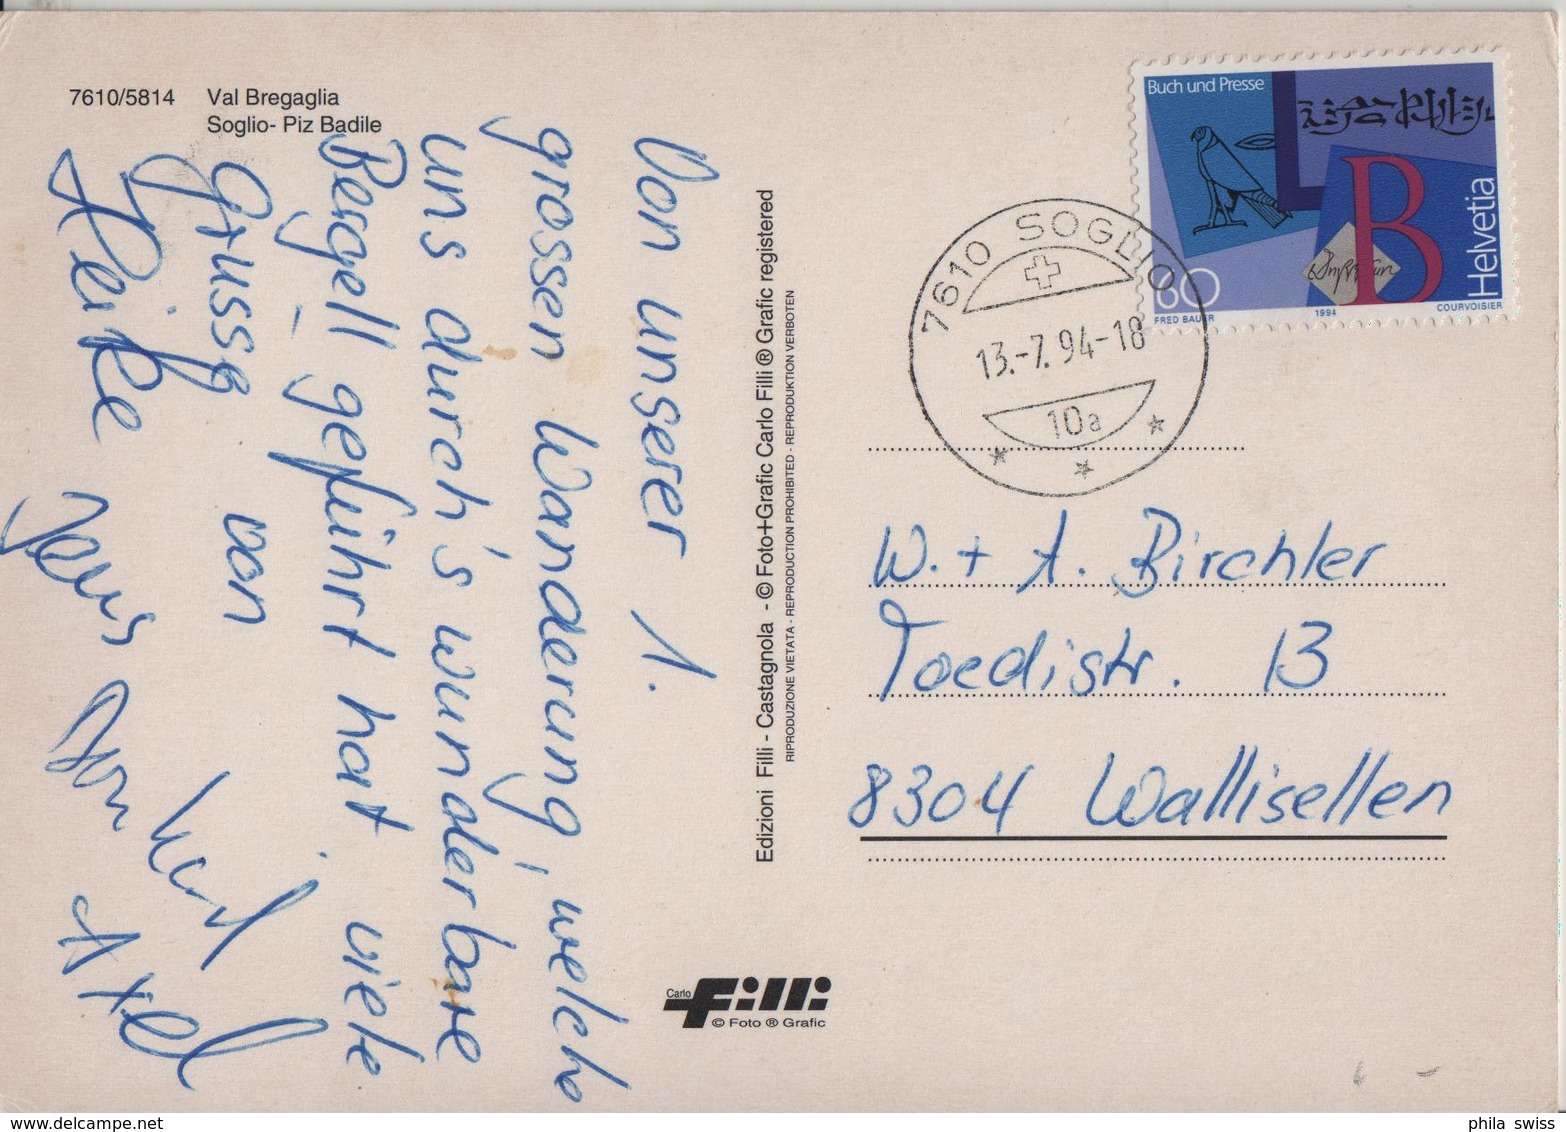 7610/5814 Val Bregaglia
Soglio- Piz Badile
Von unserer 1.
grossen Wanderung, welche
uns durch's wunderbare
Bergell geführt hat viele
Grüsse von
Heike
Axel
Edizioni Filli - Castagnola - © Foto+Grafic Carlo Filli ® Grafic registered
RIPRODUZIONE VIETATA - REPRODUCTION PROHIBITED - REPRODUKTION VERBOTEN
Carlo
Filli
© Foto ® Grafic
Buch und Presse
B
Helvetia
60
FRED BAUER
1994
COURVOISIER
7610 SOGLIO
13.-7.94-18
10a
W. + A. Birchler
Toedistr. 13
8304 Wallisellen
phila swiss